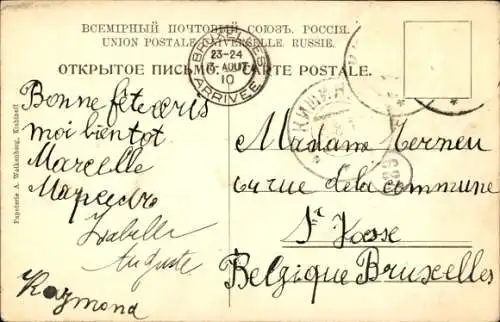 ВСЕМІРНЫЙ ПОЧТОВЫЙ СОЮЗЪ. РОССІЯ.
UNION POSTALE UNIVERSELLE. RUSSIE.
ОТКРЫТОЕ ПИСЬМО. CARTE POSTALE.
BRUXELLES
23-24
AOUT
10
ARRIVEE
Bonne fête ecris
moi bientot
Marcelle
Isabelle
Auguste
Raymond
Madame
64 rue de la commune
St Josse
Belgique Bruxelles
Papeterie A. Walkenberg, Kichineff